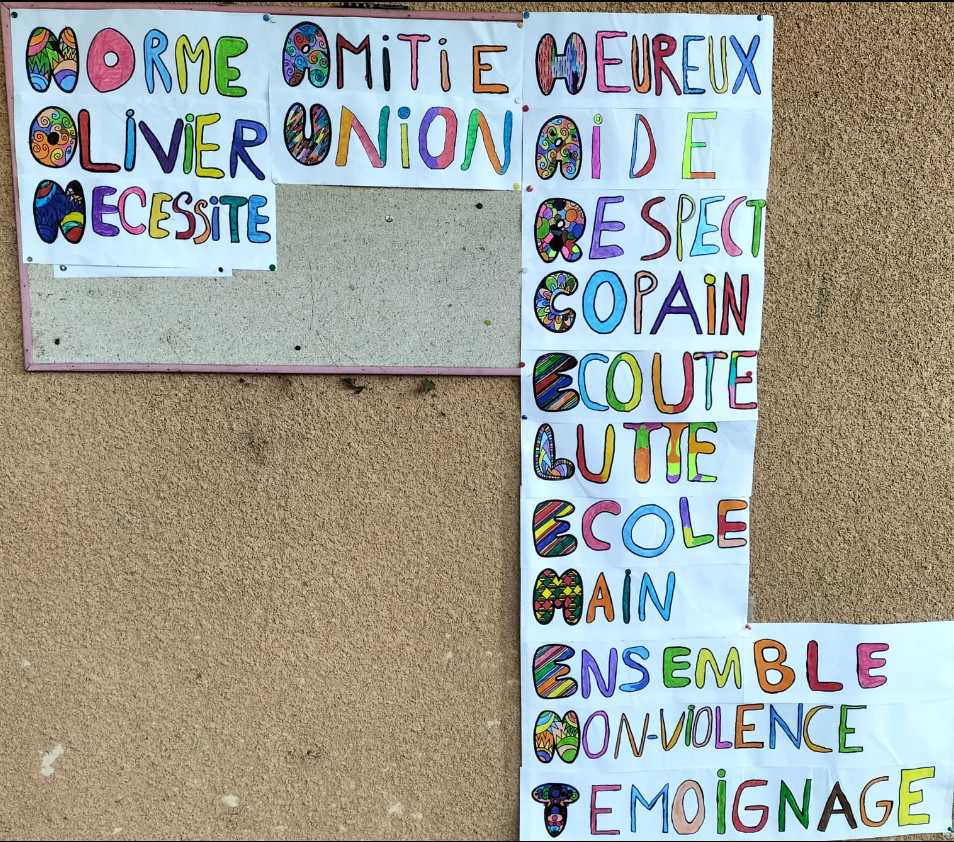 NORME
OLiViER
NECESSiTE
AMiTiE
UNiON
HEUREUX
AiDE
RESPECT
COPAiN
ECOUTE
LUTTE
ECOLE
MAiN
ENSEMBLE
NON-ViOLENCE
TEMOiGNAGE